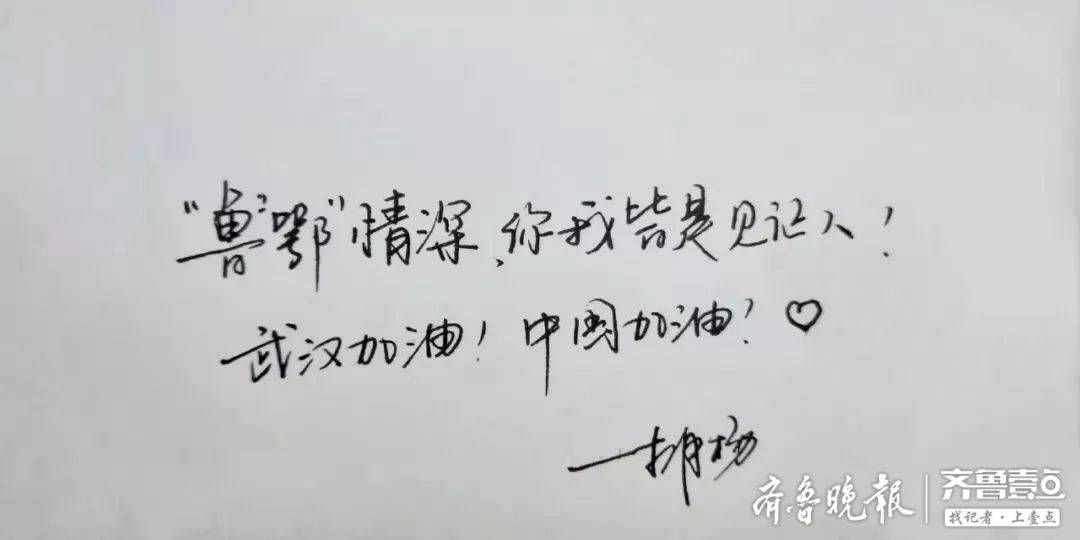 “鲁”鄂”情深、你我皆是见证人！
武汉加油！中国加油！♡
—胡杨
齐鲁晚报 | 齐鲁壹点
找记者·上壹点